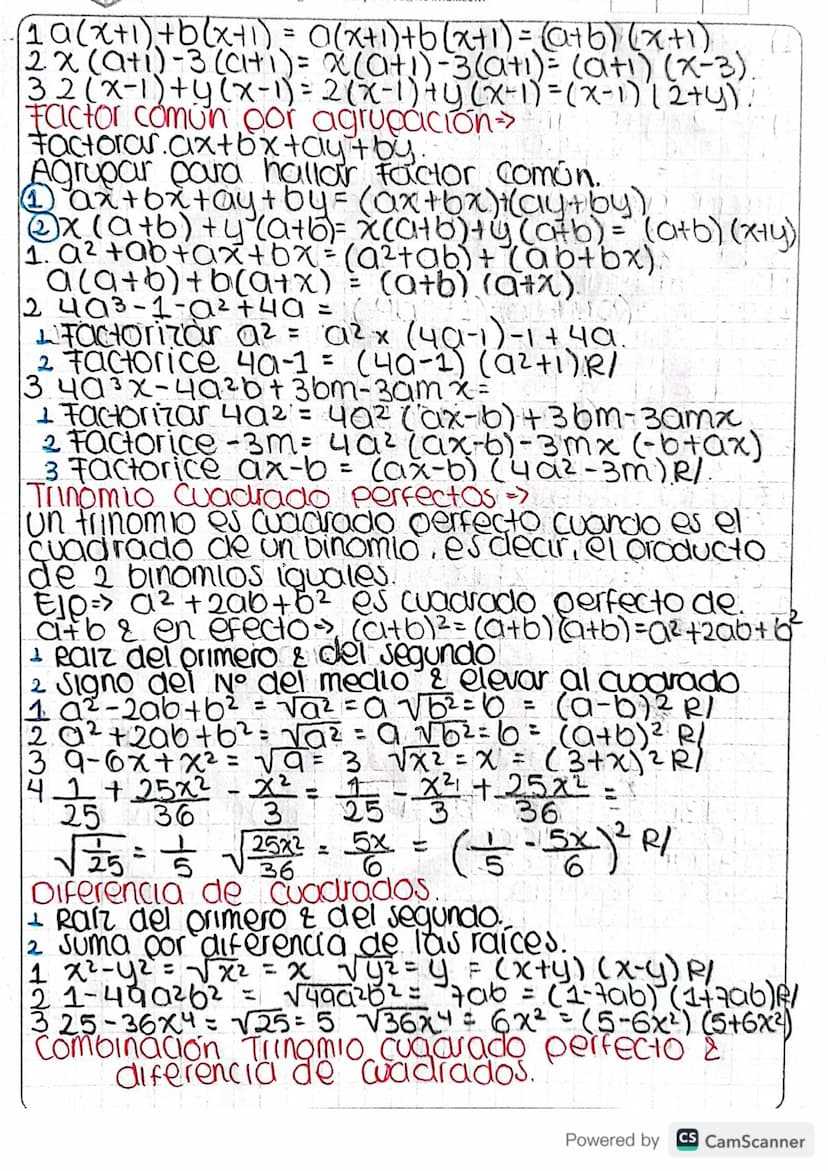 1 a(x+1)+b(x+1) = a(x+1)+b(x+1) = (a+b) (x+1)
2 x (a+1)-3(a+1)= x(a+1)-3(a+1)= (a+1) (x-3).
3 2(x-1)+y(x-1)= 2(x-1)+y(x-1)=(x-1) (2+y).
Factor común por agrupación=>
Factorar. ax+bx+ay+by.
Agrupar para hallar factor común.
① ax+bx+ay+by= (ax+bx)+(ay+by)
② x (a+b) +y (a+b)= x(a+b)+y(a+b) = (a+b) (x+y)
1. a²+ab+ax+bx=(a²+ab)+ (ab+bx).
a(a+b)+b(a+x) = (a+b) (a+x)
2 4a³-1-a²+4a =
1 Factorizar a² = a²x (4a-1)-1+4a.
2 Factorice 4a-1 = (4a-1) (a²+1)R/
3 4a³x-4a²b+3bm-3amx=
1 Factorizar 4a² = 4a² (ax-b)+3bm-3amx
2 Factorice -3m= 4a² (ax-b)-3mx (-b+ax)
3 Factorice ax-b = (ax-b) (4a²-3m)R/.
Trinomio cuadrado perfectos =>
Un trinomio es cuadrado perfecto cuando es el
cuadrado de un binomio, es decir, el producto
de 2 binomios iguales.
Ejp=> a²+2ab+b² es cuadrado perfecto de.
a+b & en efecto=> (a+b)²=(a+b)(a+b)=a²+2ab+b²
1 Raíz del primero & del segundo
2 Signo del Nº del medio & elevar al cuadrado
1 a²-2ab+b² = √a² = a √b²=b = (a-b)² R/
2 a²+2ab+b²= √a² = a √b²=b = (a+b)² R/
3 9-6x+x² = √9 = 3 √x² = x = (3+x)² R/
4 1/25 + 25x²/36 - x²/3 = 1/25 - x²/3 + 25x²/36 =
√1/25 = 1/5 √25x²/36 = 5x/6 = (1/5 - 5x/6)² R/
Diferencia de cuadrados.
1 Raíz del primero & del segundo.
2 Suma por diferencia de las raíces.
1 x²-y² = √x² = x √y² = y = (x+y) (x-y) R/
2 1-49a²b² = √49a²b² = 7ab = (1-7ab) (1+7ab)R/
3 25-36x⁴ = √25 = 5 √36x⁴ = 6x² = (5-6x²) (5+6x²)
Combinación Trinomio cuadrado perfecto &
diferencia de cuadrados.
Powered by CS CamScanner